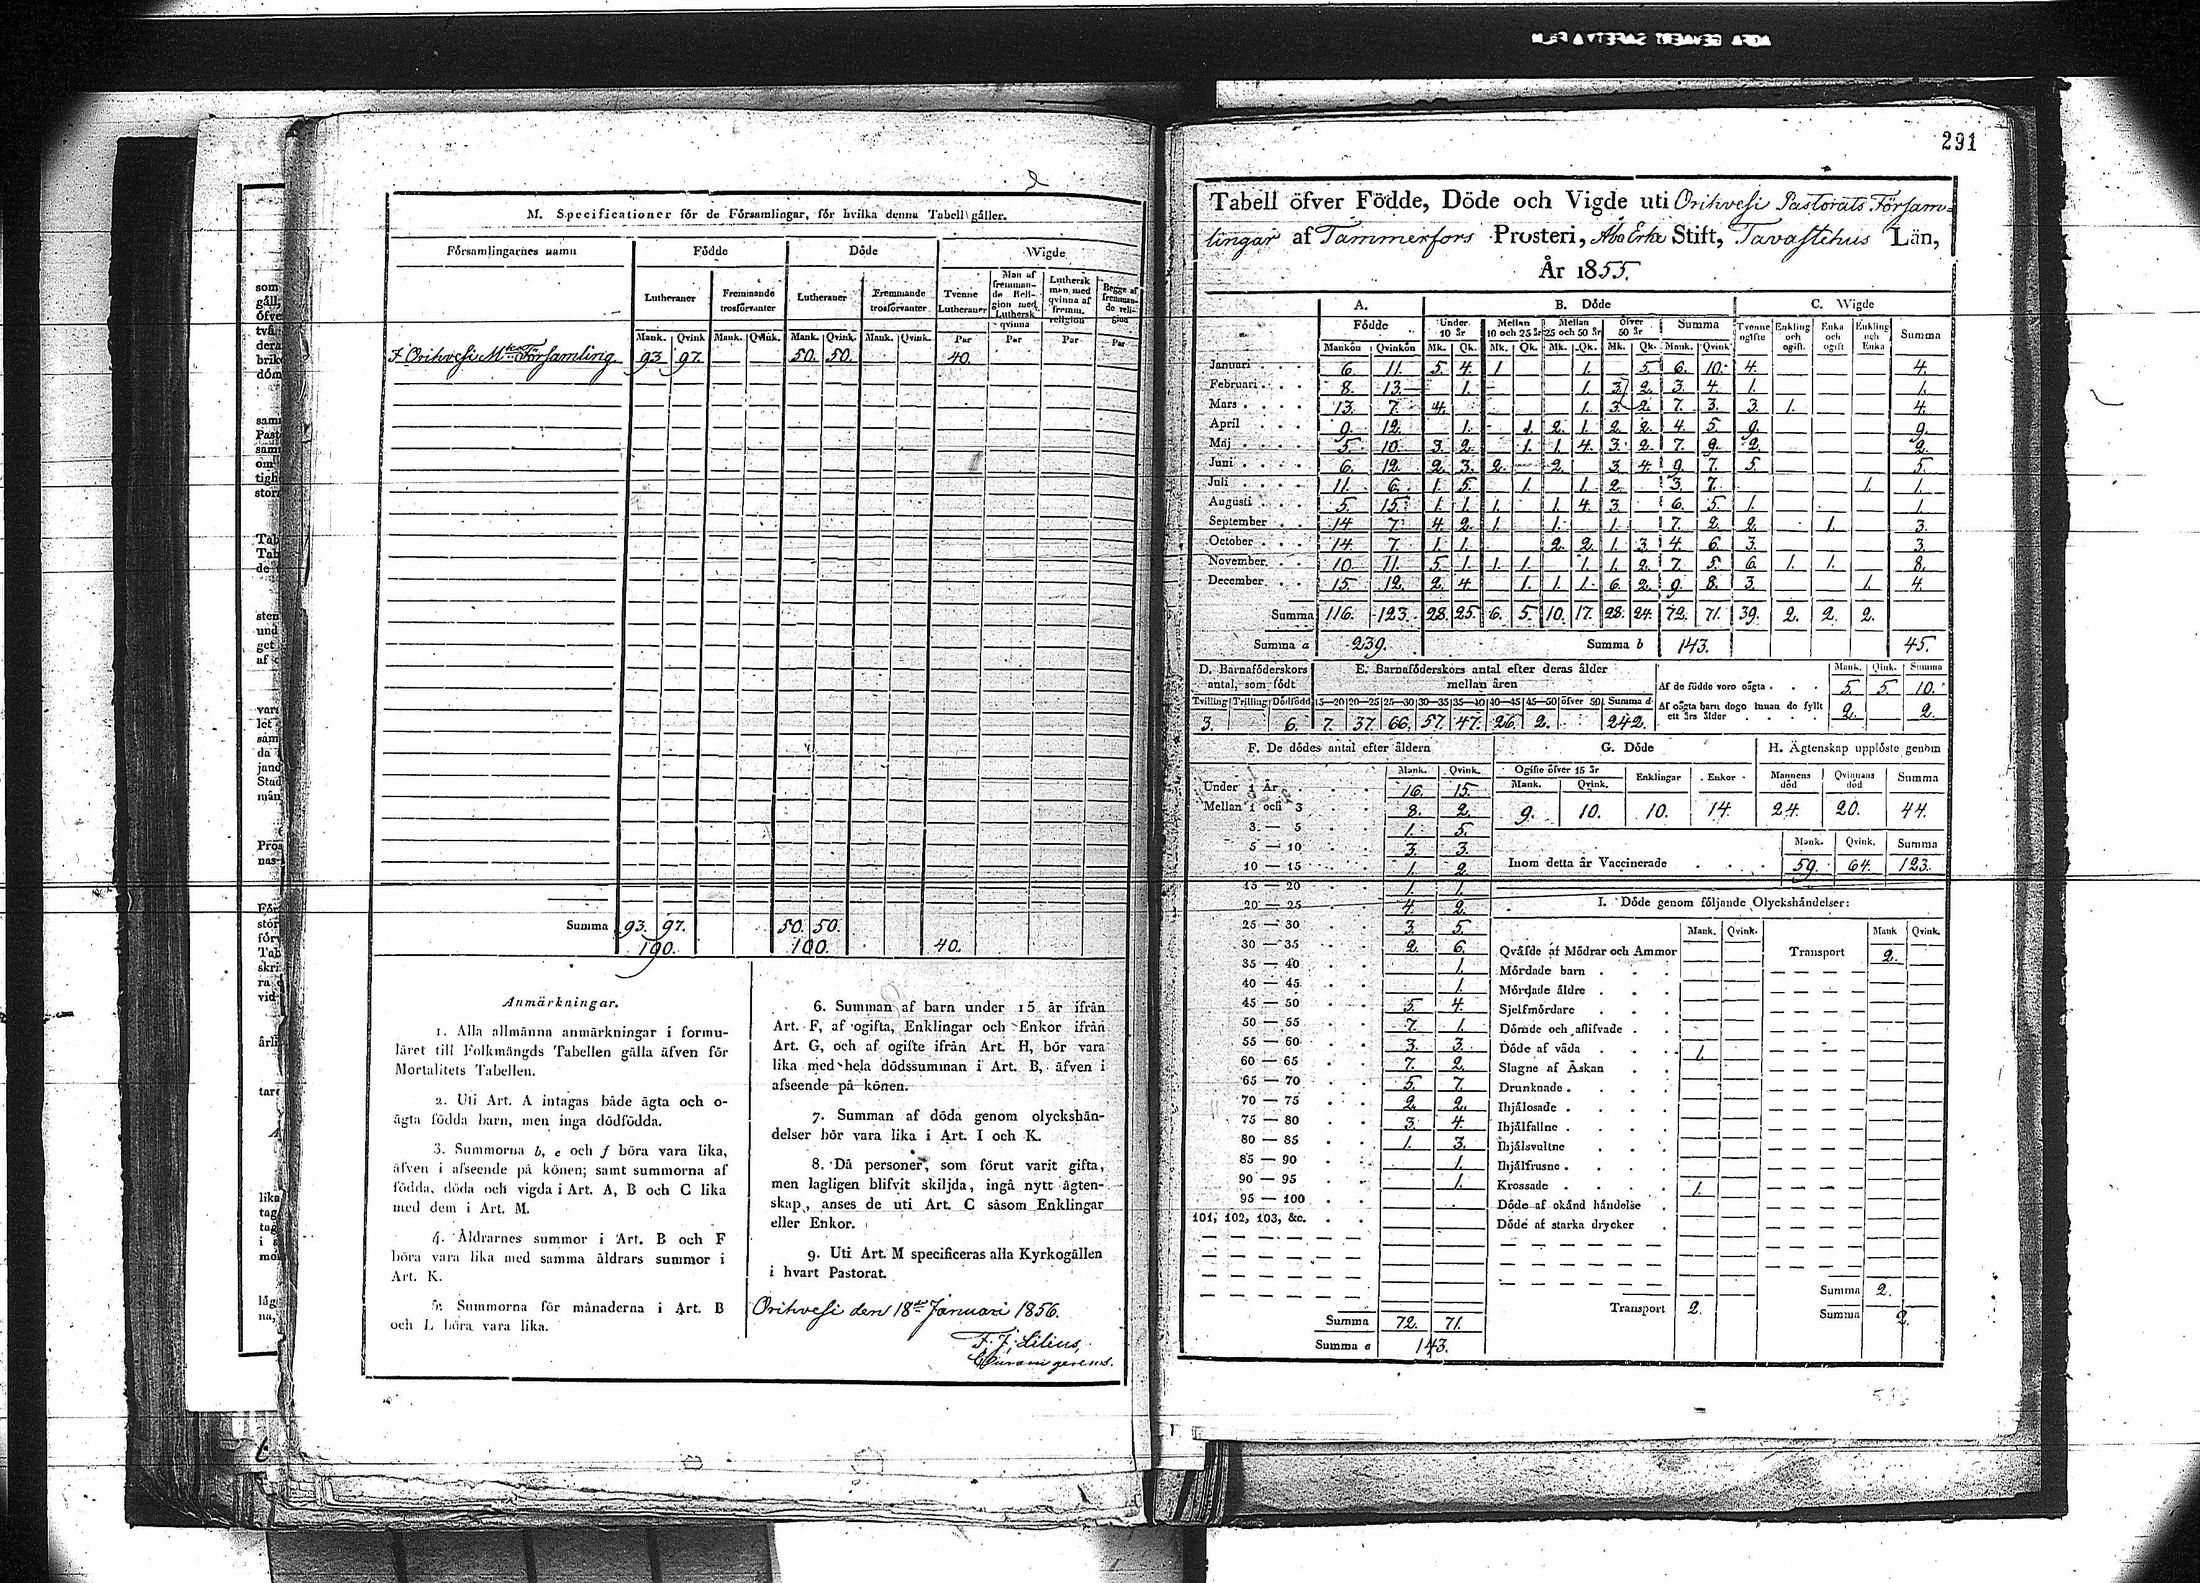 291
M. Specificationer för de Församlingar, för hvilka denna Tabell gäller.
Församlingarnes namn Födde Döde Wigde
Lutheraner Fremmande trosförvanter Lutheraner Fremmande trosförvanter Tvenne Lutheraner Man af fremmande Religion med Luthersk qvinna Luthersk man med qvinna af fremm. religion Begge af fremmande religion
Mank. Qvink. Mank. Qvink. Mank. Qvink. Mank. Qvink. Par Par Par Par
I Orihvesi Församling 93 97. 50. 50. 40.
Summa 93. 97. 50. 50.
190. 100. 40.
Anmärkningar.
1. Alla allmänna anmärkningar i formu-
läret till Folkmängds Tabellen gälla äfven för
Mortalitets Tabellen.
2. Uti Art. A intagas både ägta och o-
ägta födda barn, men inga dödfödda.
3. Summorna b, e och f böra vara lika,
äfven i afseende på könen; samt summorna af
födda, döda och vigda i Art. A, B och C lika
med dem i Art. M.
4. Åldrarnes summor i Art. B och F
böra vara lika med samma åldrars summor i
Art. K.
5. Summorna för månaderna i Art. B
och L böra vara lika.
6. Summan af barn under 15 år ifrån
Art. F, af ogifta, Enklingar och Enkor ifrån
Art. G, och af ogifte ifrån Art. H, bör vara
lika med hela dödssumman i Art. B, äfven i
afseende på könen.
7. Summan af döda genom olyckshän-
delser bör vara lika i Art. I och K.
8. Då personer, som förut varit gifta,
men lagligen blifvit skiljda, ingå nytt ägten-
skap, anses de uti Art. C såsom Enklingar
eller Enkor.
9. Uti Art. M specificeras alla Kyrkogällen
i hvart Pastorat.
Orihvesi den 18de Januari 1856.
F. J. Lilius,
Curam gerens.
Tabell öfver Födde, Döde och Vigde uti Orihvesi Pastorats Försam-
lingar af Tammerfors Prosteri, Åbo Erke Stift, Tavastehus Län,
År 1855.
A. B. Döde C. Wigde
Födde Under 10 år Mellan 10 och 25 år Mellan 25 och 50 år Öfver 50 år Summa Tvenne ogifte Enkling och ogift. Enka och ogift Enkling och Enka Summa
Mankön Qvinkön Mk. Qk. Mk. Qk. Mk. Qk. Mk. Qk. Mank. Qvink
Januari 6. 11. 5. 4. 1 1. 5. 6. 10. 4. 4.
Februari 8. 13. 1. 1. 3. 2. 3. 4. 1. 1.
Mars 13. 7. 4. 1. 3. 2. 7. 3. 3. 1. 4.
April 9. 12. 1. 1. 2. 1. 2. 2. 4. 5. 9. 9.
Maj 5. 10. 3. 2. 1. 1. 4. 3. 2. 7. 9. 2. 2.
Juni 6. 12. 2. 3. 2. 2. 3. 4. 9. 7. 5. 5.
Juli 11. 6. 1. 5. 1. 1. 2. 3. 7. 1. 1.
Augusti 5. 15. 1. 1. 1. 1. 4. 3. 6. 5. 1. 1.
September 14 7. 4. 2. 1. 1. 1. 7. 2. 2. 1. 3.
October 14. 7. 1. 1. 2. 2. 1. 3. 4. 6. 3. 3.
November 10 11. 5. 1. 1. 1. 1. 1. 2. 7. 5. 6. 1. 1. 8.
December 15. 12. 2. 4. 1. 1. 1. 6. 2. 9. 8. 3. 1. 4.
Summa 116. 123. 28. 25. 6. 5. 10. 17. 28. 24. 72. 71. 39. 2. 2. 2.
Summa a 239. Summa b 143. 45.
D. Barnaföderskors antal, som födt
E. Barnaföderskors antal efter deras ålder mellan åren
Mank. Qink. Summa
Af de födde voro oägta 5. 5. 10.
Tvilling Trilling Dödfödd 15—20 20—25 25—30 30—35 35—40 40—45 45—50 öfver 50 Summa d
Af oägta barn dogo innan de fyllt ett års ålder 2. 2.
3. 6. 7. 37. 66. 57. 47. 26. 2. 242.
F. De dödes antal efter åldern
Mank. Qvink.
Under 1 År 16. 15.
Mellan 1 och 3 8. 2.
3 — 5 1. 5.
5 — 10 3. 3.
10 — 15 1. 2.
15 — 20 1. 1.
20 — 25 4. 2.
25 — 30 3. 5.
30 — 35 2. 6.
35 — 40 1.
40 — 45 1
45 — 50 5 4.
50 — 55 7. 1.
55 — 60 3. 3.
60 — 65 7. 2.
65 — 70 5. 7.
70 — 75 2. 2.
75 — 80 3. 4.
80 — 85 1. 3.
85 — 90 1.
90 — 95 1.
95 — 100
101, 102, 103, &c.
Summa 72. 71.
Summa e 143.
G. Döde
Ogifte öfver 15 år Enklingar Enkor
Mank. Qvink.
9. 10. 10. 14.
H. Ägtenskap upplöste genom
Mannens död Qvinnans död Summa
24. 20. 44.
Mank. Qvink. Summa
Inom detta år Vaccinerade 59. 64. 123.
I. Döde genom följande Olyckshändelser:
Mank. Qvink. Mank Qvink.
Qväfde af Mödrar och Ammor Transport 2.
Mördade barn
Mördade äldre
Sjelfmördare
Dömde och aflifvade
Döde af våda 1.
Slagne af Åskan
Drunknade
Ihjälosade
Ihjälfallne
Ihjälsvultne
Ihjälfrusne
Krossade 1.
Döde af okänd händelse
Döde af starka drycker
Summa 2.
Transport 2. Summa 2.